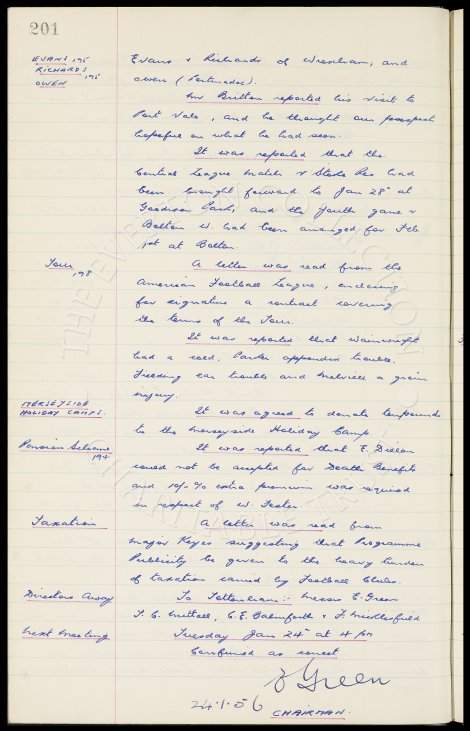 201
EVANS 195
RICHARDS 195
OWEN
Evans & Richards of Wrexham, and
Owen (Portmadoc).
Mr Britton reported his visit to
Port Vale, and he thought our prospects
hopeful on what he had seen.
It was reported that the
Central League match v Stoke Res had
been brought forward to Jan 28th at
Goodison Park, and the Youth game v
Bolton W. had been arranged for Feb
1st at Bolton.
Tour 198
A letter was read from the
American Football League, enclosing
for signature a contract covering
the terms of the Tour.
It was reported that Wainwright
had a cold, Parker appendix trouble,
Fielding ear trouble and Melville a groin
injury.
MERSEYSIDE
HOLIDAY CAMPS.
It was agreed to donate
to the Merseyside Holiday Camp.
Pension Scheme
194
It was reported that E. Dillon
could not be accepted for Death Benefits
and 10/-% extra premium was required
in respect of W. Foster.
Taxation
A letter was read from
Major Keyes suggesting that Programme
Publicity be given to the heavy burden
of taxation carried by Football Clubs.
Directors Away
To Tottenham:- Messrs E. Green
T. C. Nuttall, C. E. Balmforth & F. Micklesfield
Next Meeting
Tuesday Jan 24th at 4 pm
Confirmed as correct
E Green
24.1.56
CHAIRMAN.
THE EVERTON COLLECTION
CHARITABLE TRUST